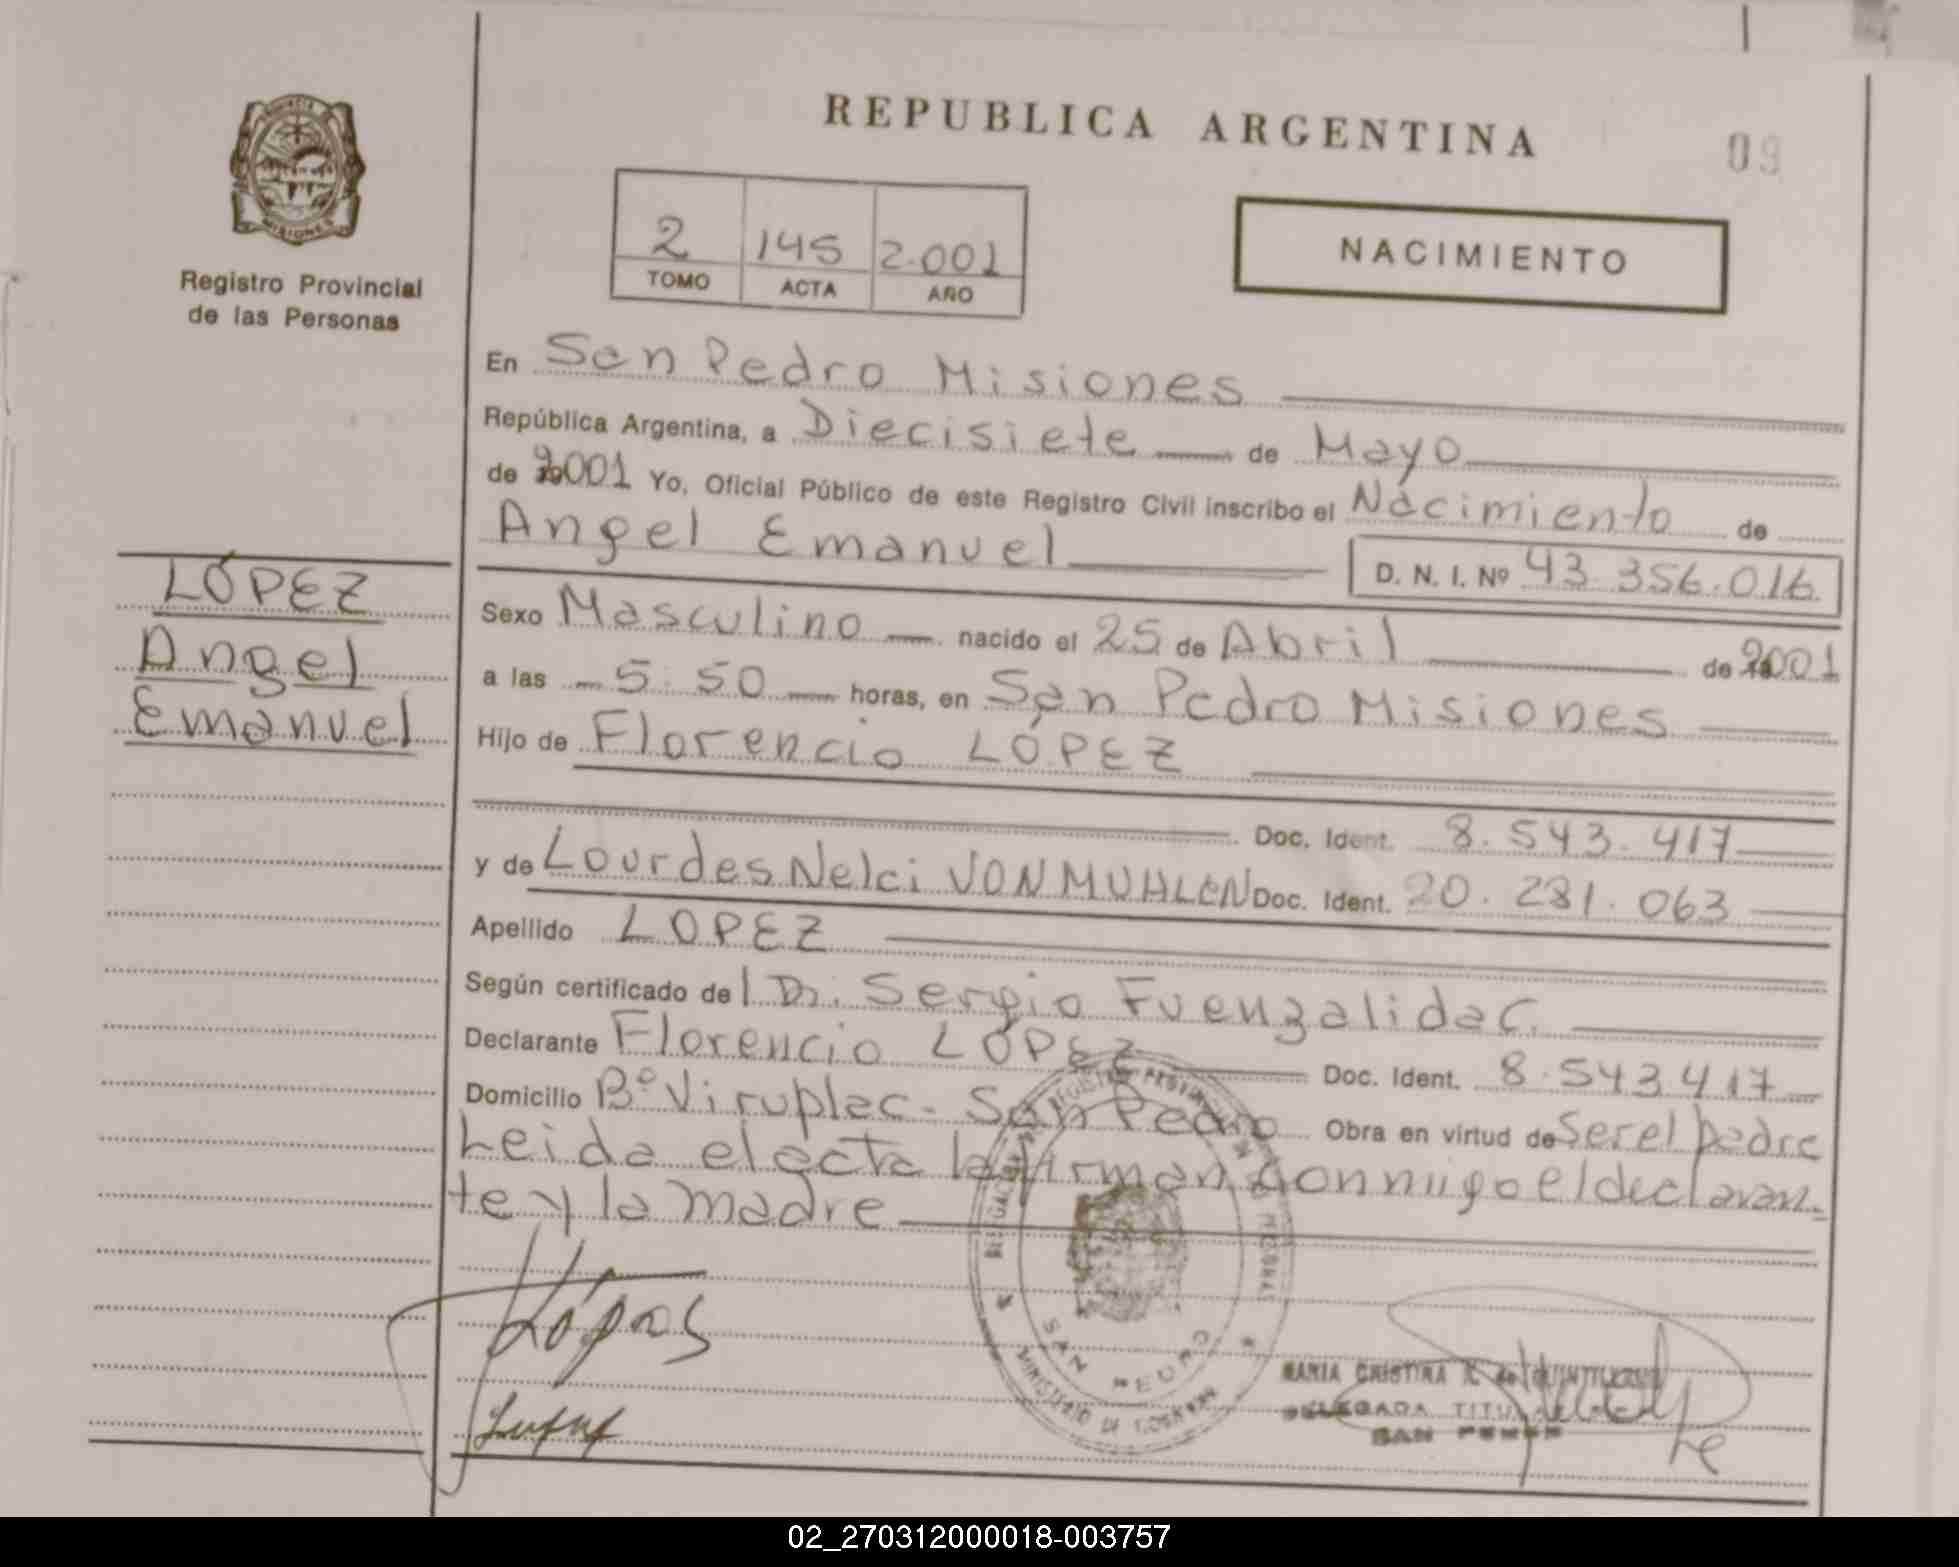 REPUBLICA ARGENTINA
09
PROVINCIA
MISIONES
Registro Provincial
de las Personas
2 145 2.001
TOMO ACTA AÑO
NACIMIENTO
En San Pedro Misiones
República Argentina, a Diecisiete de Mayo
de 2001 Yo, Oficial Público de este Registro Civil inscribo el Nacimiento de
Angel Emanuel D. N. I. Nº 43.356.016
LÓPEZ
Angel
Emanuel
Sexo Masculino nacido el 25 de Abril de 2001
a las 5:50 horas, en San Pedro Misiones
Hijo de Florencio LÓPEZ
Doc. Ident. 8.543.417
y de Lourdes Nelci VON MUHLEN Doc. Ident. 20.281.063
Apellido LOPEZ
Según certificado del Dr. Sergio Fuenzalida C.
Declarante Florencio LÓPEZ Doc. Ident. 8.543417
Domicilio Bº Viruplac - San Pedro Obra en virtud de Ser el padre
Leida el acta la firman conmigo el declaran-
te y la madre
SAN PEDRO
MINISTERIO DE GOBIERNO
MARIA CRISTINA
DELEGADA TITULAR
SAN PEDRO
02_270312000018-003757